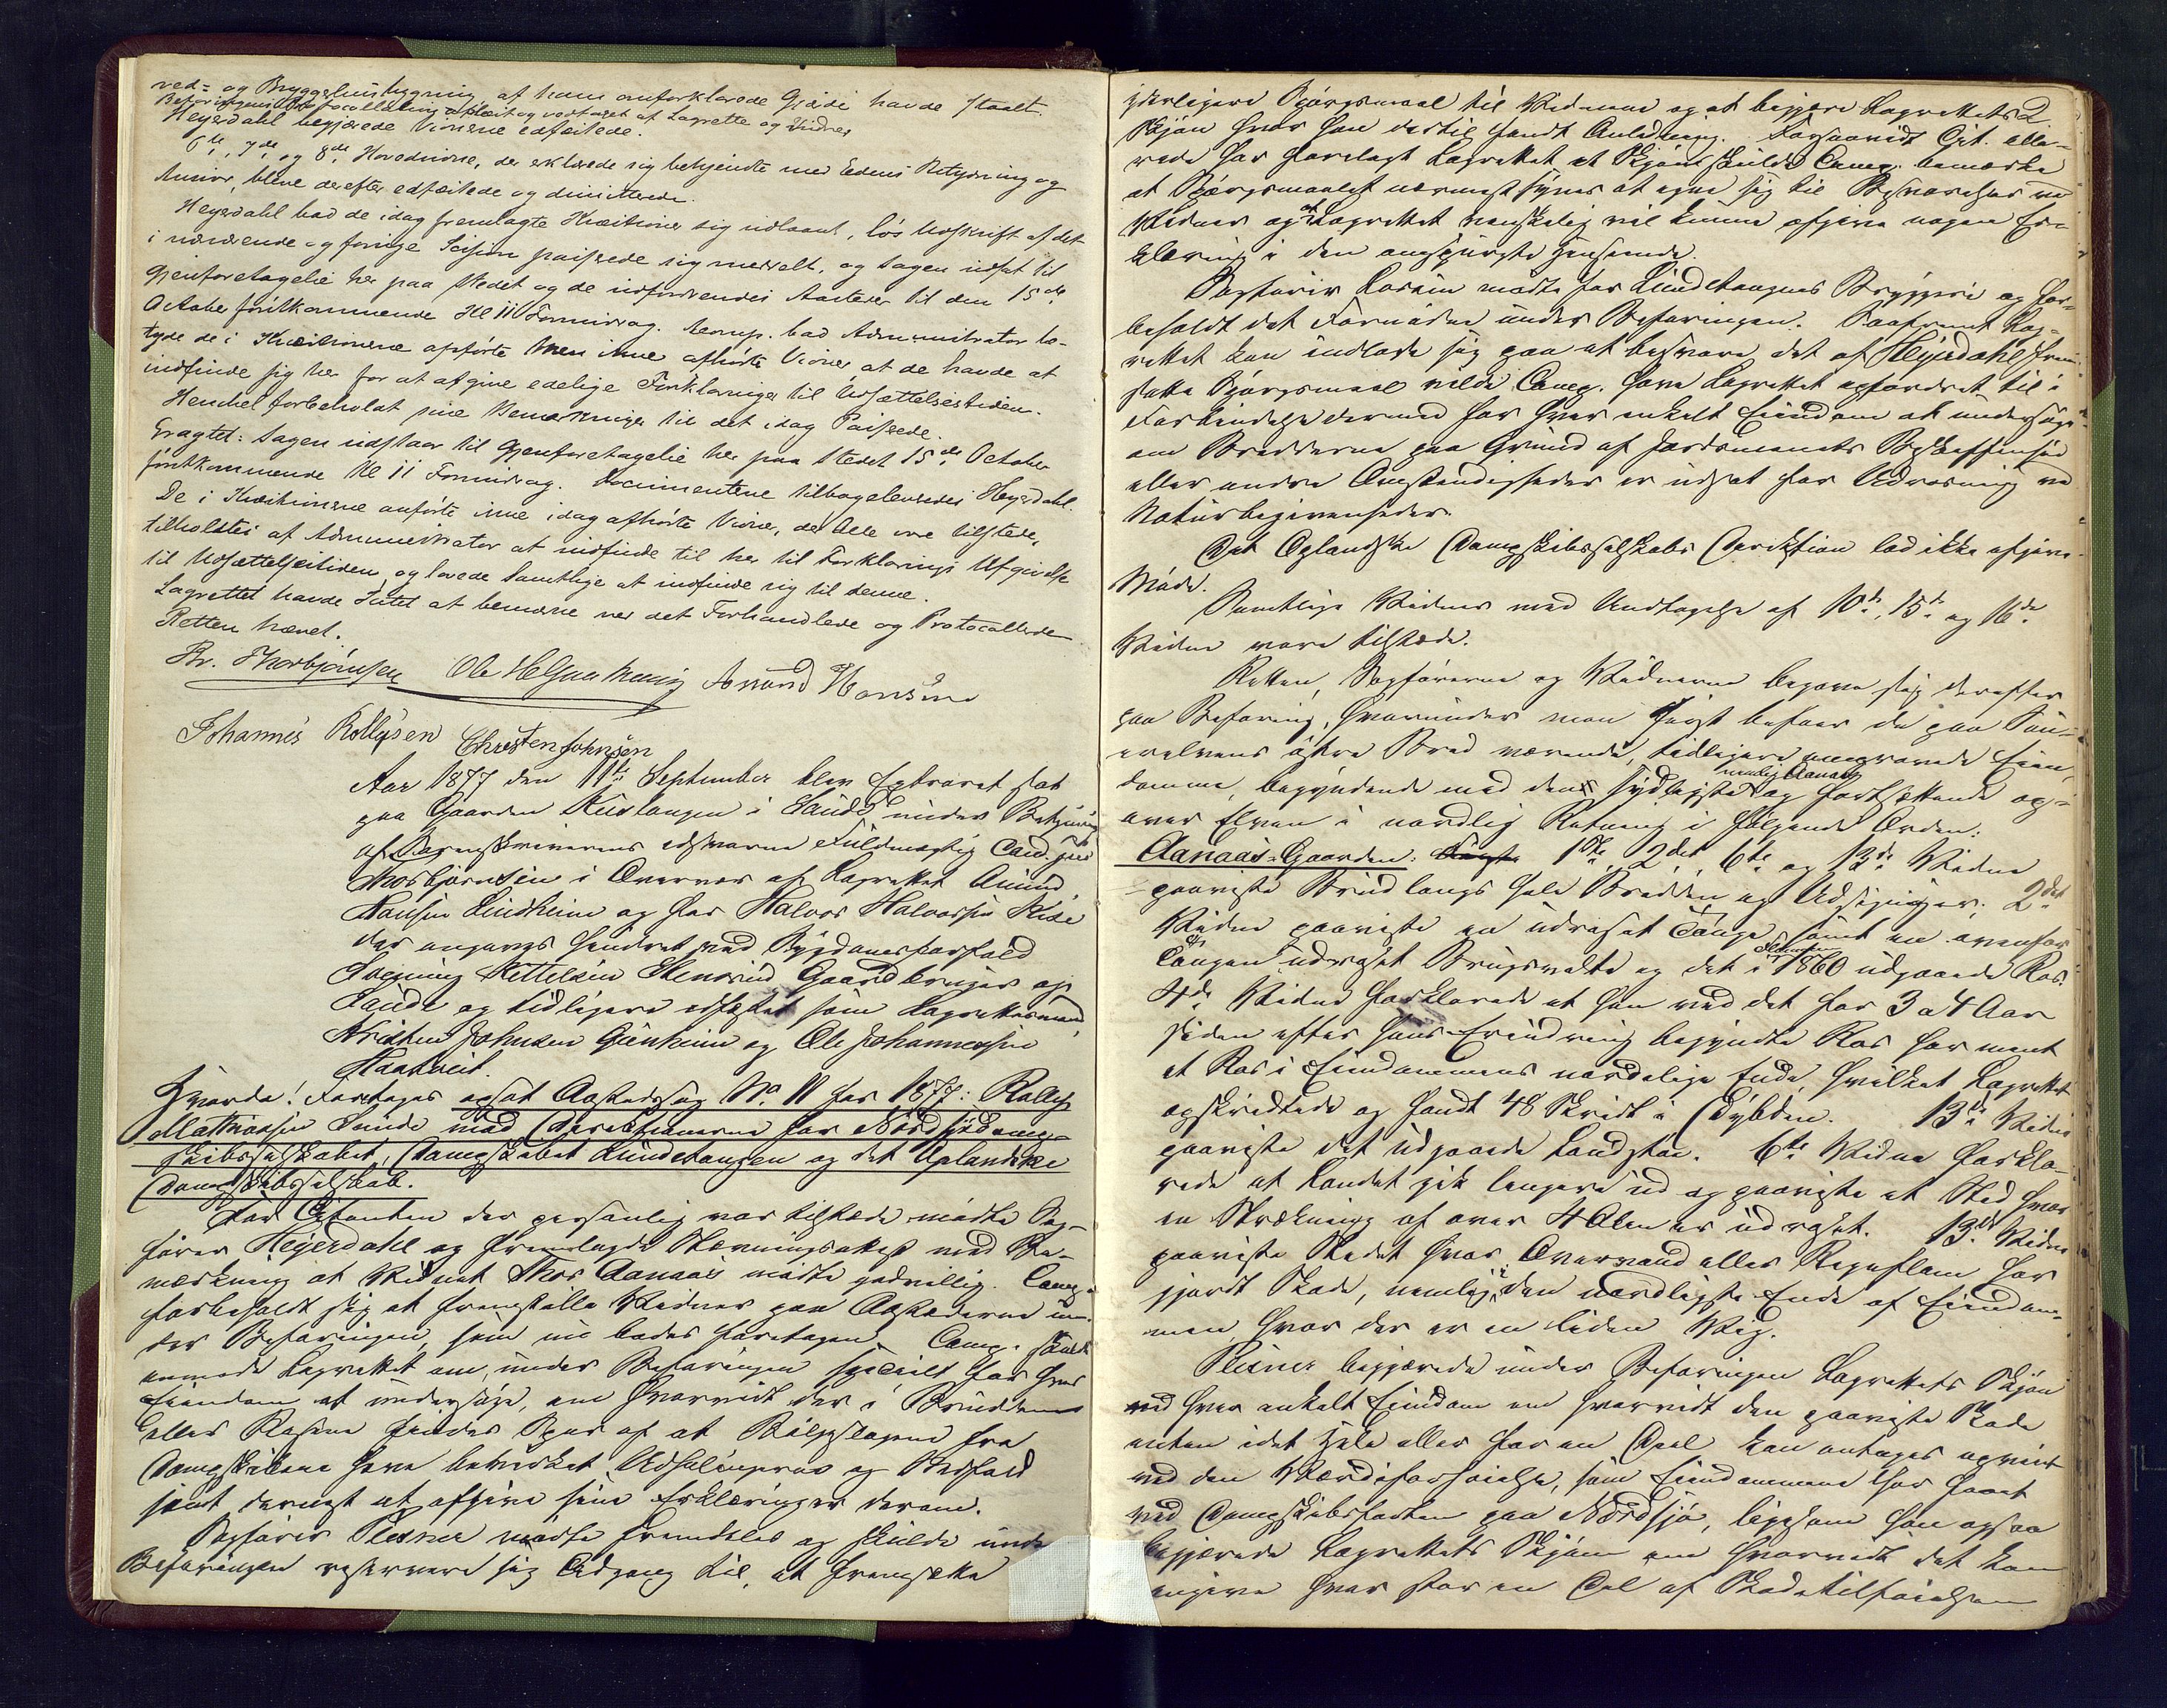 ved- og Bryggehusbygning af ham omforklarede Grøde havde staalt.
Befaringens Protocollering oplæst og vedtaget af Lagrette og Vidner
Heyerdahl begjærede Vidnerne edfæstede.
6te, 7de og 8de Hovedvidne, der erklærede sig bekjendte med Edens Betydning og
Ansvar, bleve derefter edfæstede og dimitterede.
Heyerdahl bad de idag fremlagte Qvæstioner sig udlaant, løs Udskrift af det
i nærværende og forrige Session passerede sig meddelt, og Sagen udsat til
Gjenforetagelse her paa Stedet og de udfordrendes Aasteder til den 15de
October førstkommende Kl 11 Formiddag. Comp. bad Administrator to-
tyde de i Qvæstionerne opførte men inne afhørte Vidner at de havde at
indfinde sig her for at afgive edelige Forklaringer til Udsættelsestiden.
Henchel forbeholdt sine Bemærkninger til det idag Passerede.
Eragtet: Sagen udstaar til Gjenforetagelse her paa Stedet 15de October
førstkommende Kl 11 Formiddag. Documenterne tilbageleveredes Heyerdahl.
De i Qvæstionerne anførte inne idag afhørte Vidner, der Alle vare tilstede,
tilholdtes af Administrator at indfinde til her til Forklarings Afgivelse
til Udsættelsestiden, og lovede Samtlige at indfinde sig til denne.
Lagrettet havde Intet at bemærke ved det Forhandlede og Protocollerede
Retten hævet.
Br. Thorbjørnsen Ole H Amund Hansen
Johannes Rollefsen Christen Johnsen
Aar 1877 den 11te September blev Extraret sat
paa Gaarden Rustangen i Saude under Betjening
af Sorenskriverens edsvorne Fuldmægtig Cand. jur.
Thorbjørnsen i Overvær af Lagrettet Amund
Hansen Lindheim og for Halvor Halvorsen Kise
der angaves hindret ved Sygdomsforfald
Sveinung Kettelsen Stensrud Gaardbruger af
Saude og tidligere edfæstet som Lagrettesmand,
Kristen Johnsen Grenheim og Ole Johannessen
Haatveit.
Hvorda! Foretages ogsat Aastedssag No. 11 for 1877: Rollef
Mathiassen Saude mod Direktionerne for Nordsjø Damp-
skibsselskabet, Dampskibet Lundetangen og det Oplandske
Dampskibsselskab.
For Citanten der personlig var tilstede mødte Sag-
fører Heyerdahl og fremlagde Stævningsattest med Be-
mærkning at Vidnet Thor Aanaas mødte godvillig. Comp.
forbeholdt sig at fremstille Vidner paa Aastederne un-
der Befaringen, som nu bedes foretagen. Comp. skulde
anmode Lagrettet om, under Befaringen specielt for hver
Eiendom at undersøge, om hvorvidt der i Bruddene
eller Rasene findes Spor af at Bølgeslagene fra
Dampskibene have bevirket Udhulinger og Nedfald
samt dernæst at afgive sine Erklæringer derom.
Sagfører Plesner mødte fremdeles og skulde under
Befaringen reservere sig Adgang til, at fremsætte
yderligere Spørgsmaal til Vidnerne og at begjære Lagrettets 2
Skjøn hvor han dertil fandt Anledning. Forsaavidt Cit. alle-
rede har forelagt Lagrettet et Skjøn skulde Comp. bemærke
at Spørgsmaalet nærmest synes at egne sig til Besvarelse ved
Vidner og at Lagrettet vanskelig vil kunne afgive nogen Er-
klæring i den angivne Henseende.
Sagfører mødte for Lundetangens Bryggeri og for-
beholdt det Fornødne under Befaringen. Saafremt Lag-
rettet kan indlade sig paa at besvare det af Heyerdahl frem-
satte Spørgsmaal vilde Comp. have Lagrettet opfordret til i
Forbindelse dermed for hver enkelt Eiendom at undersøge
om Bredderne paa Grund af Jordsmonets Beskaffenhed
eller andre Omstændigheder er udsat for Udrasning ved
Naturbegivenheder.
Det Oplandske Dampskibsselskabs Direktion lod ikke afgive
Møde.
Samtlige Vidner med Undtagelse af 10de, 15de og 16de
Vidne vare tilstede.
Retten, Sagførerne og Vidnerne begave sig derefter
paa Befaring, hvorunder man først befaer de paa Sau-
erelvens østre Bred værende, tidligere omprovede Eien-
domme, begyndende med den sydligste nemlig Aanaas og fortsættende op-
over Elven i nordlig Retning i følgende Orden:
Aanaas-Gaarden: 1ste, 2det, 6te og 13de Vidne
paaviste Brud langs hele Bredden og Udsigninger; 2det
Vidne paaviste en udraset Tange, samt en ovenfor
Tangen udraset Brugsvalte og det i Høsten 1860 udgaaede Ras.
4de Vidne forklarede at han ved det for 3 a 4 Aar
siden efter hans Erindring begyndte Ras har ment
et Ras i Eiendommens nordlige Ende, hvilket Lagrettet
opskridtede og fandt 48 Skridt i Dybden. 13de Vidne
paaviste det udgaaede Landstøe. 6te Vidne forkla-
rede at Landet gik længere ud og paaviste et Sted hvor
en Strækning af over 4 Alen er udraset. 13de Vidne
paaviste Stedet hvor Overvand eller Regnflom har
gjordt Skade, nemlig i den nordligste Ende af Eiendom-
men, hvor der er en liden Vig.
Plesner begjærede under Befaringen Lagrettets Skjøn
ved hver enkelt Eiendom om hvorvidt den paaviste Skade
enten idet hele eller for en Deel kan antages opveiet
ved den Værdiforhøielse, som Eiendommene har faaet
ved Dampskibsfarten paa Nordsjø, ligesom han ogsaa
begjærede Lagrettets Skjøn om hvorvidt det kan
angives hvor stor en Del af Skadestilføielsen